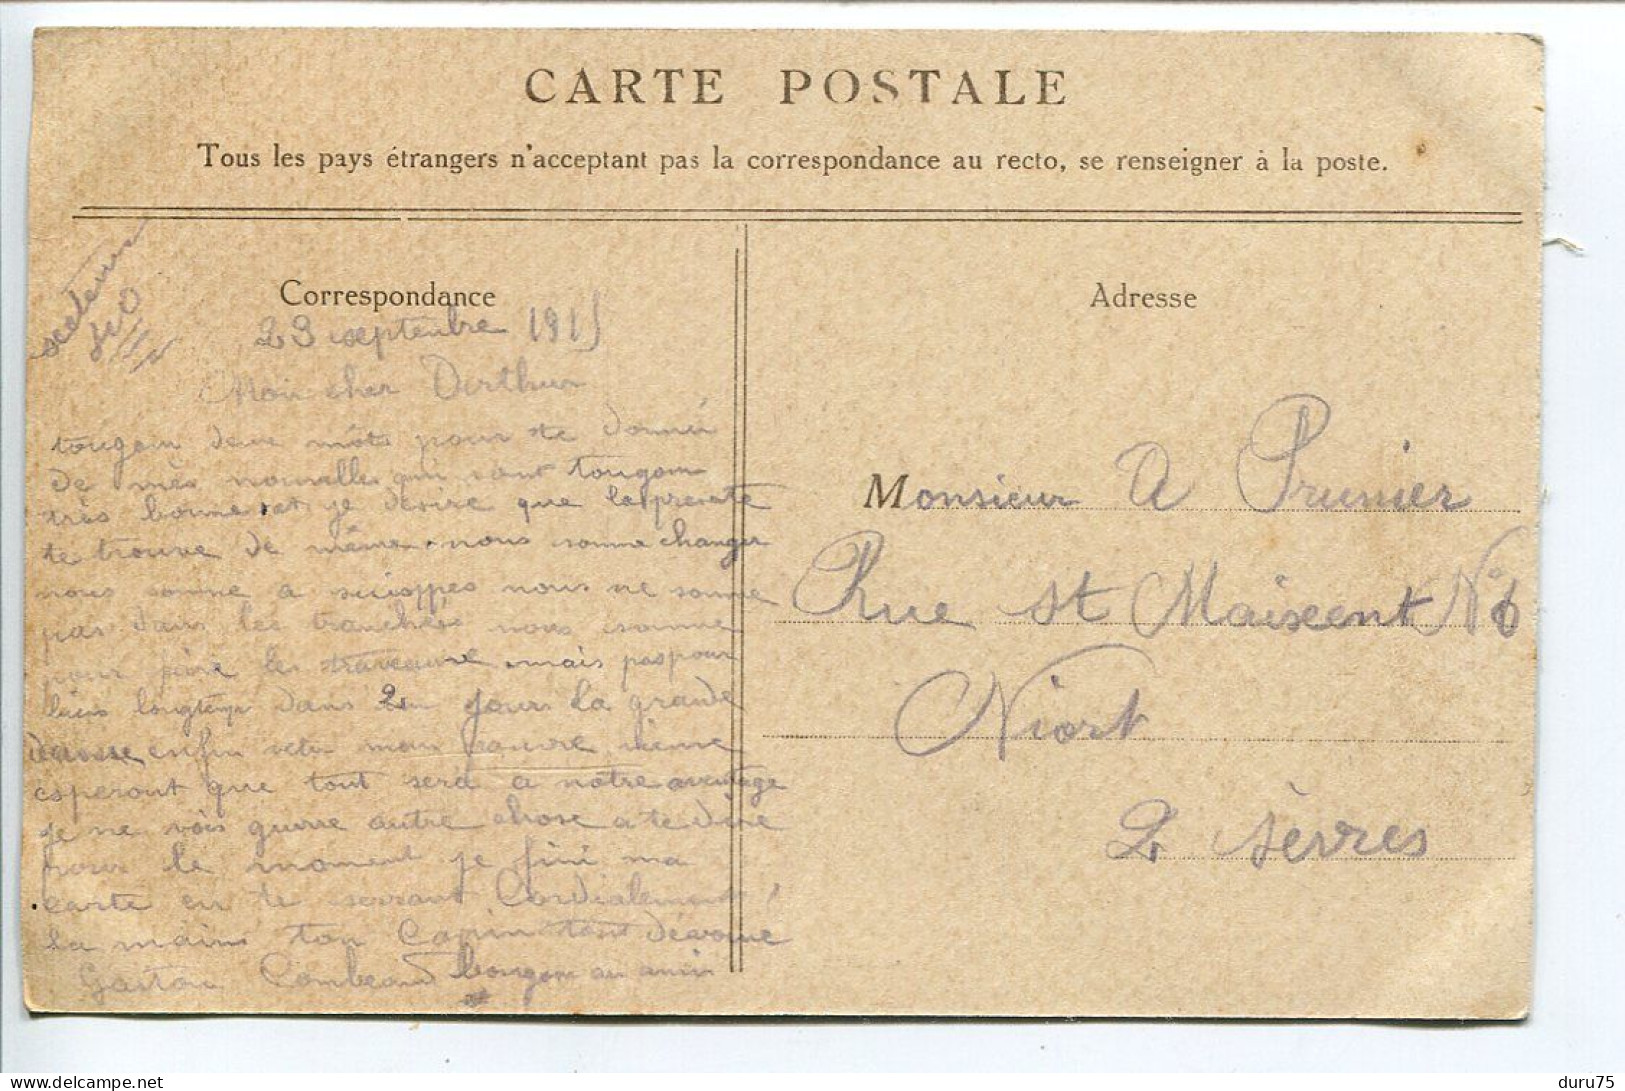 CARTE POSTALE
Tous les pays étrangers n'acceptant pas la correspondance au recto, se renseigner à la poste.
secteur
Correspondance
23 septenbre 1915
Mon cher Arthur
tougour deux mots pour te donner
de mes nouvelles qui sont tougour
très bonne et je desire que la presente
te trouve de même. nous somme changer
nous somme a suioppes nous ne somme
pas dans les tranchées nous somme
pour faire les traveaux mais pas pour
longtemps dans 2 jours la grande
enfin mon pauvre
esperont que tout sera a notre aventage
je ne vois guerre autre chose a te dire
pour le moment je fini ma
carte en te serrant Cordialement
la mains ton Copin tout dévoué
Gaston Combeau bougour au amis
Adresse
Monsieur A Prunier
Rue St Maixent No 6
Niort
2 Sèvres
delcampe.net
duru75